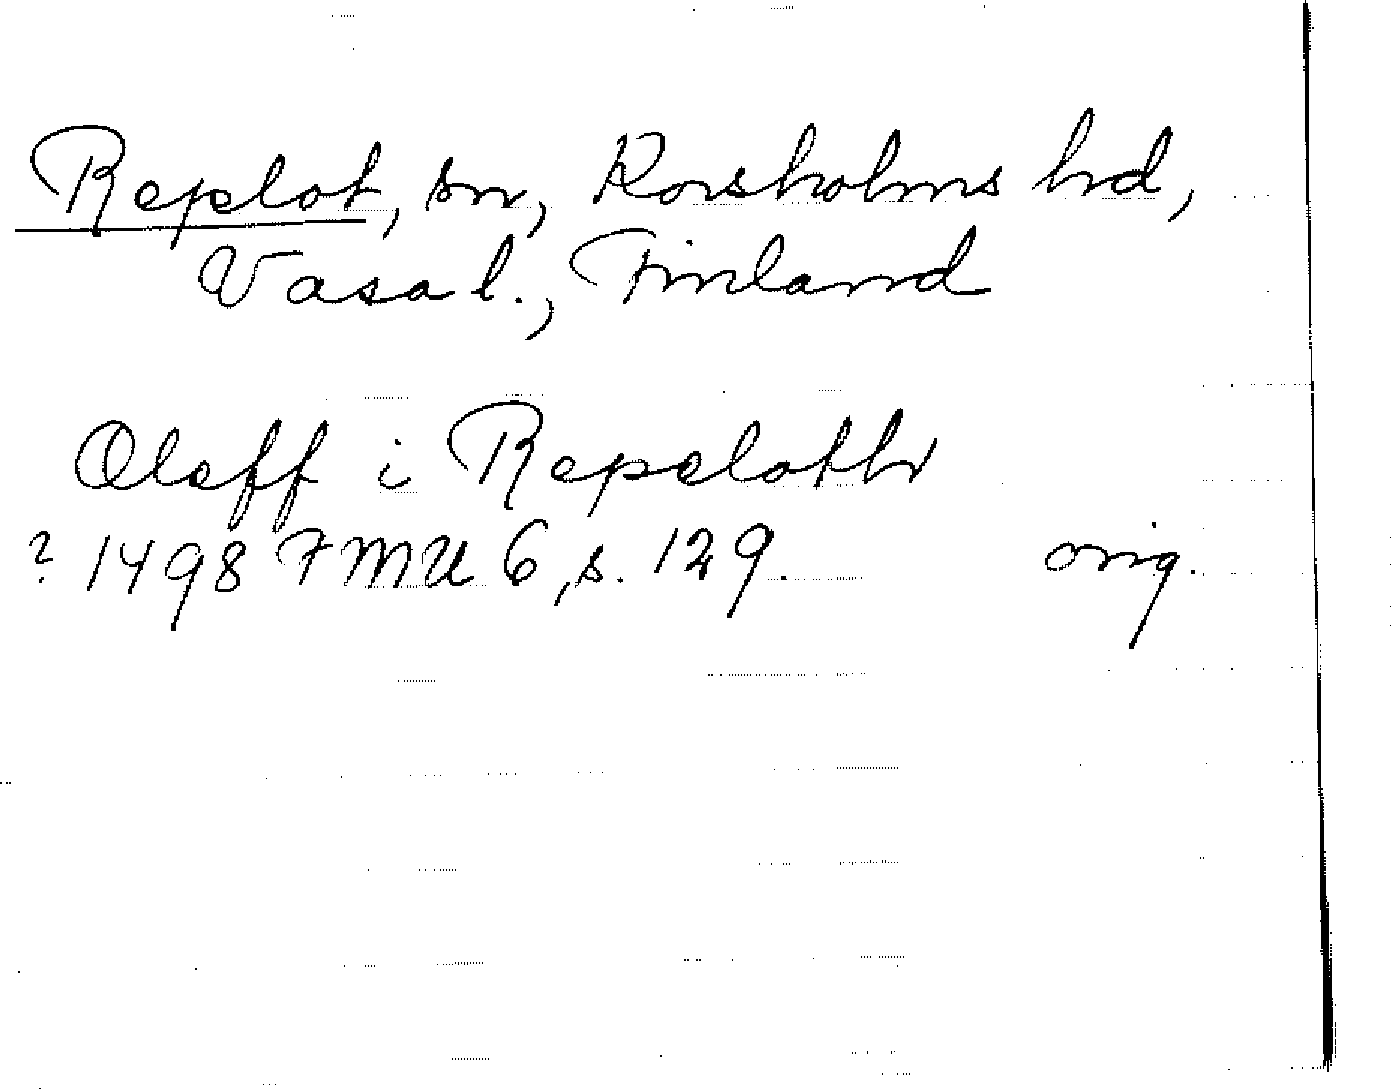 Replot, sn, Korsholms hd,
Vasa l., Finland
Oleff i Repeloth
? 1498 FMU 6, s. 129. orig.